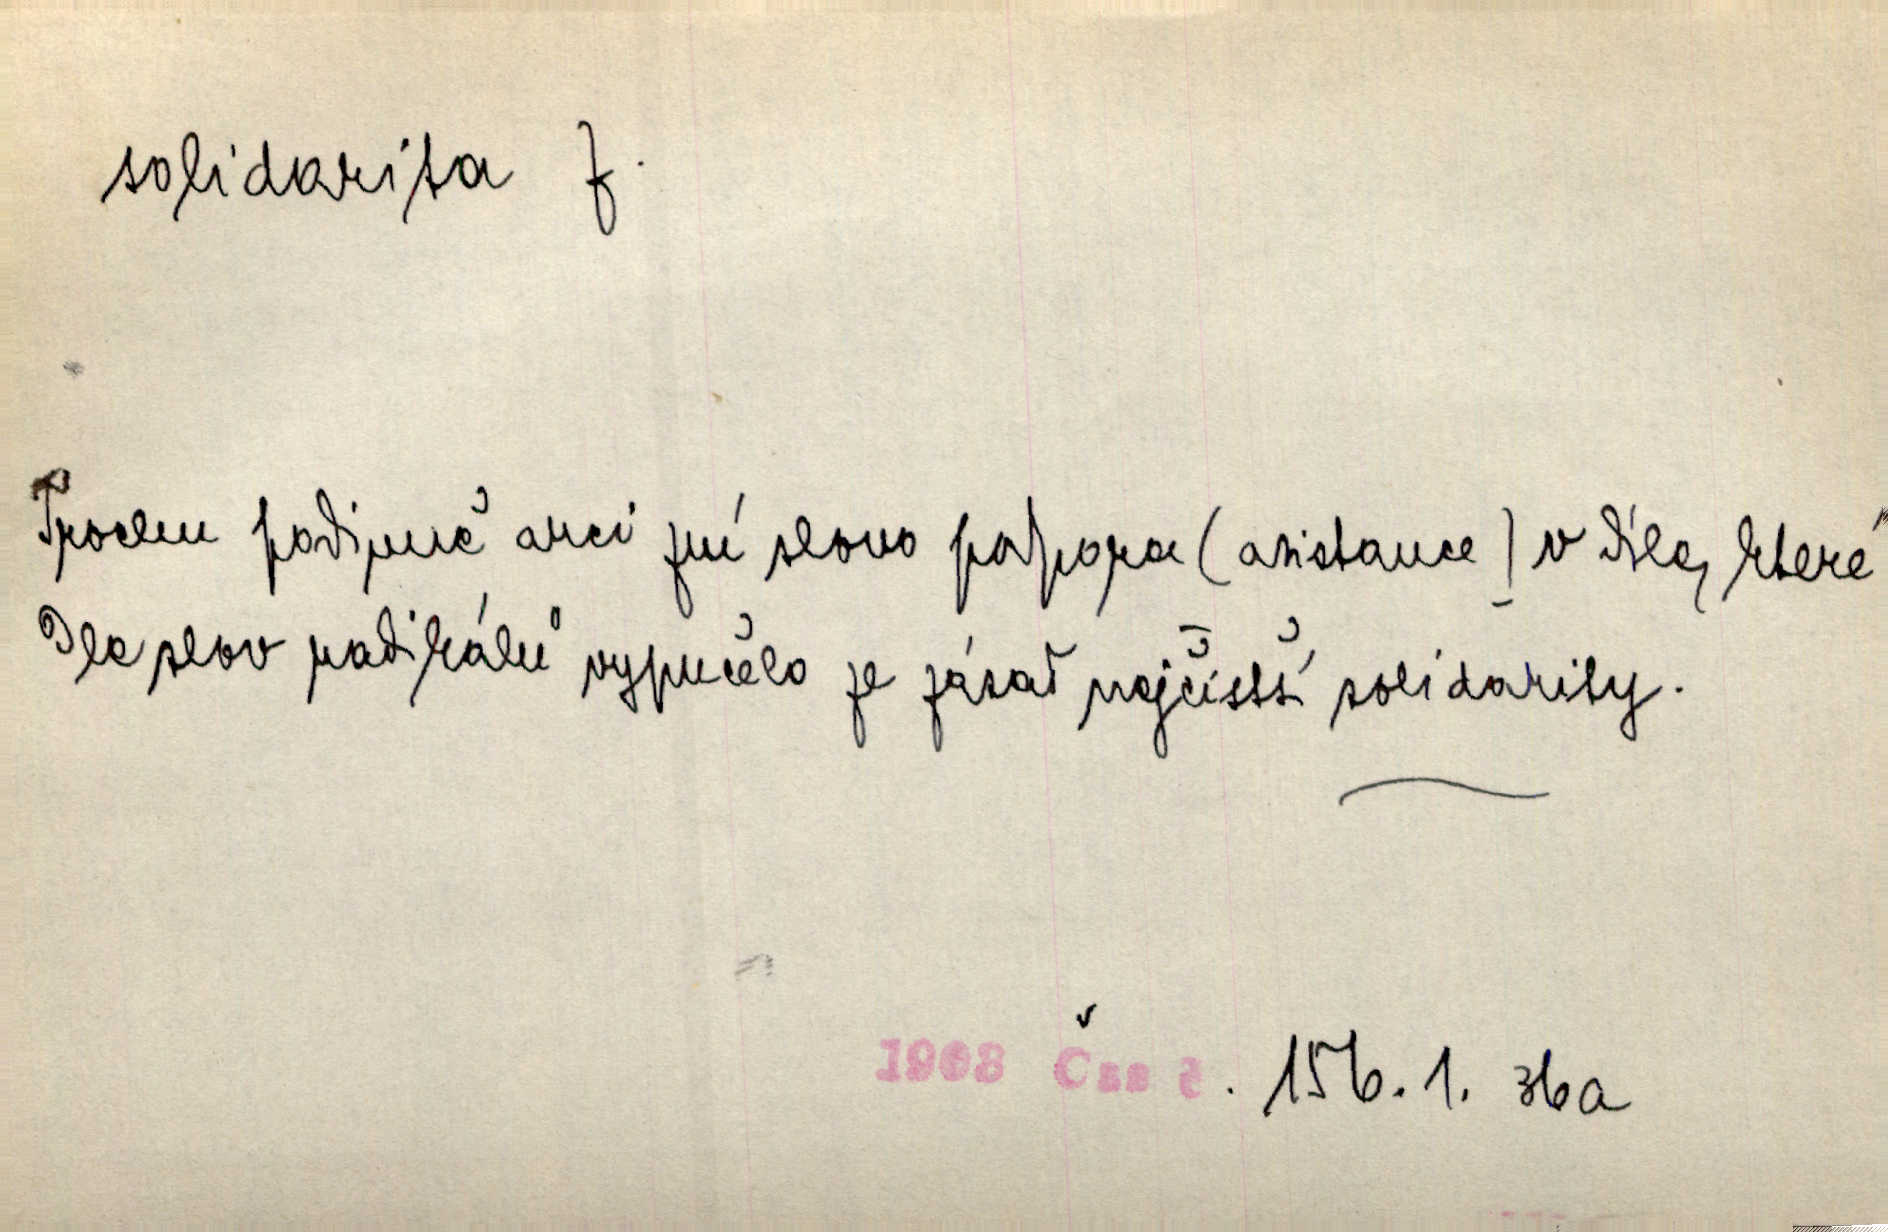 solidarita f.
Trochu podivně arci zní slovo podpora (asistance) v díle, které
dle slov radikálů vypučelo ze zásad nejčistší solidarity.
1908 Čas č. 156. 1. 3ba